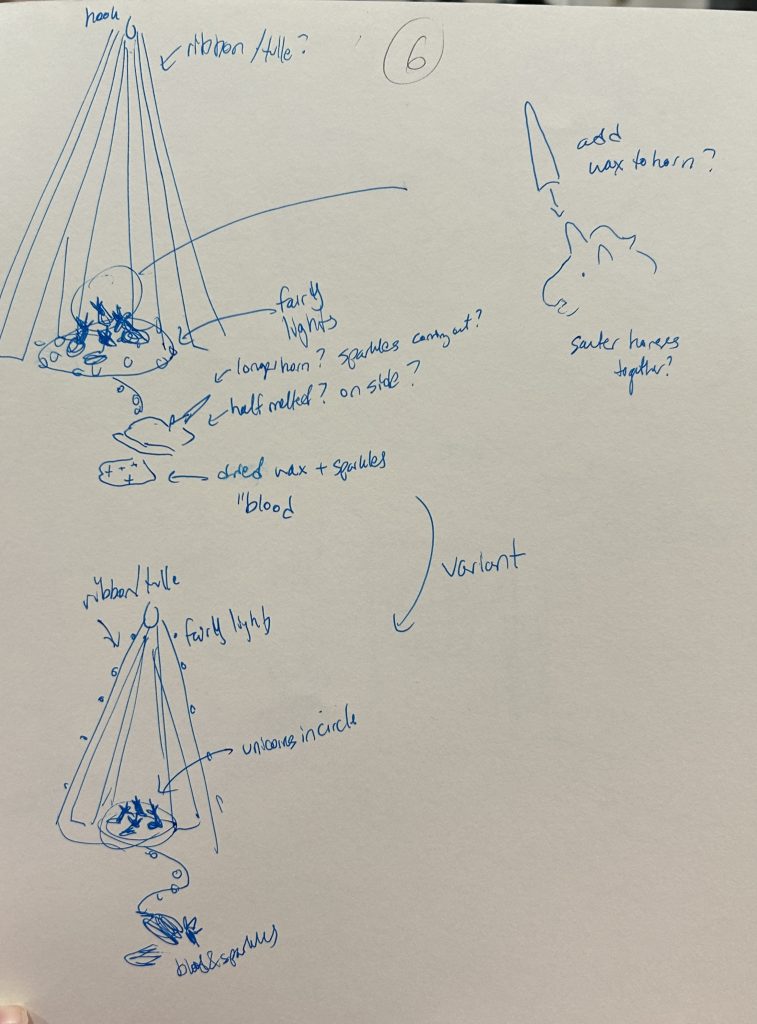 hook
ribbon/tulle?
6
add
wax to horn?
fairly
lights
longer horn? sparkles coming out?
half melted? on side?
dried wax + sparkles
"blood
together?
variant
ribbon/tulle
fairly lights
unicorns in circle
blood & sparkles